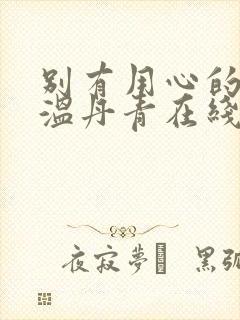 别有用心的
温丹青在线
夜寂夢 黑弧